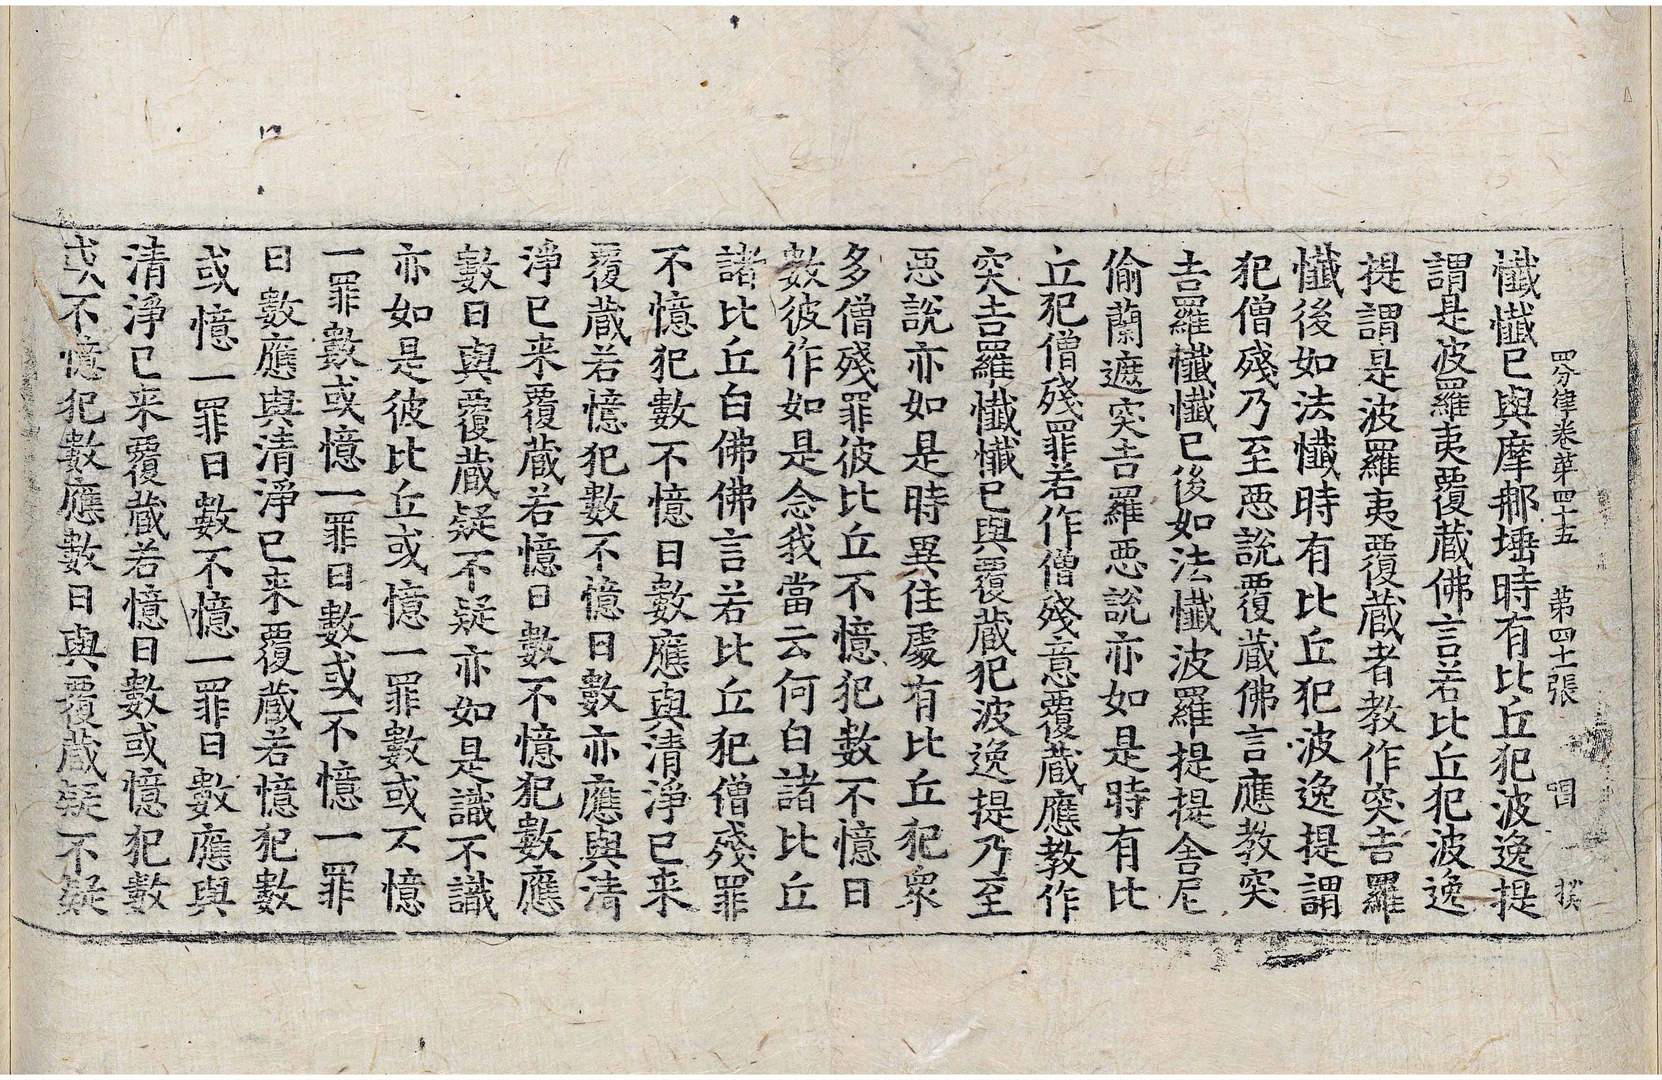 四分律卷苐四十五 第四十張 唱
懴懴已與摩那埵時有比丘犯波逸提
謂是波羅夷覆蔵佛言若比丘犯波逸
提謂是波羅夷覆蔵者教作突吉羅
懴後如法懴時有比丘犯波逸提謂
犯僧殘乃至惡說覆蔵佛言應教突
吉羅懴懴已後如法懴波羅提提舍尼
偷蘭遮突吉羅惡說亦如是時有比
丘犯僧殘罪若作僧殘意覆蔵應教作
突吉羅懴懴已與覆蔵犯波逸提乃至
惡說亦如是時異住處有比丘犯衆
多僧殘罪彼比丘不憶犯數不憶日
數彼作如是念我當云何白諸比丘
諸比丘白佛佛言若比丘犯僧殘罪
不憶犯數不憶日數應與清淨已来
覆蔵若憶犯數不憶日數亦應與清
淨已来覆蔵若憶日數不憶犯數應
數日與覆蔵疑不疑亦如是識不識
亦如是彼比丘或憶一罪數或不憶
一罪數或憶一罪日數或不憶一罪
日數應與清淨已来覆蔵若憶犯數
或憶一罪日數不憶一罪日數應與
清淨已来覆蔵若憶日數或憶犯數
或不憶犯數應數日與覆蔵疑不疑